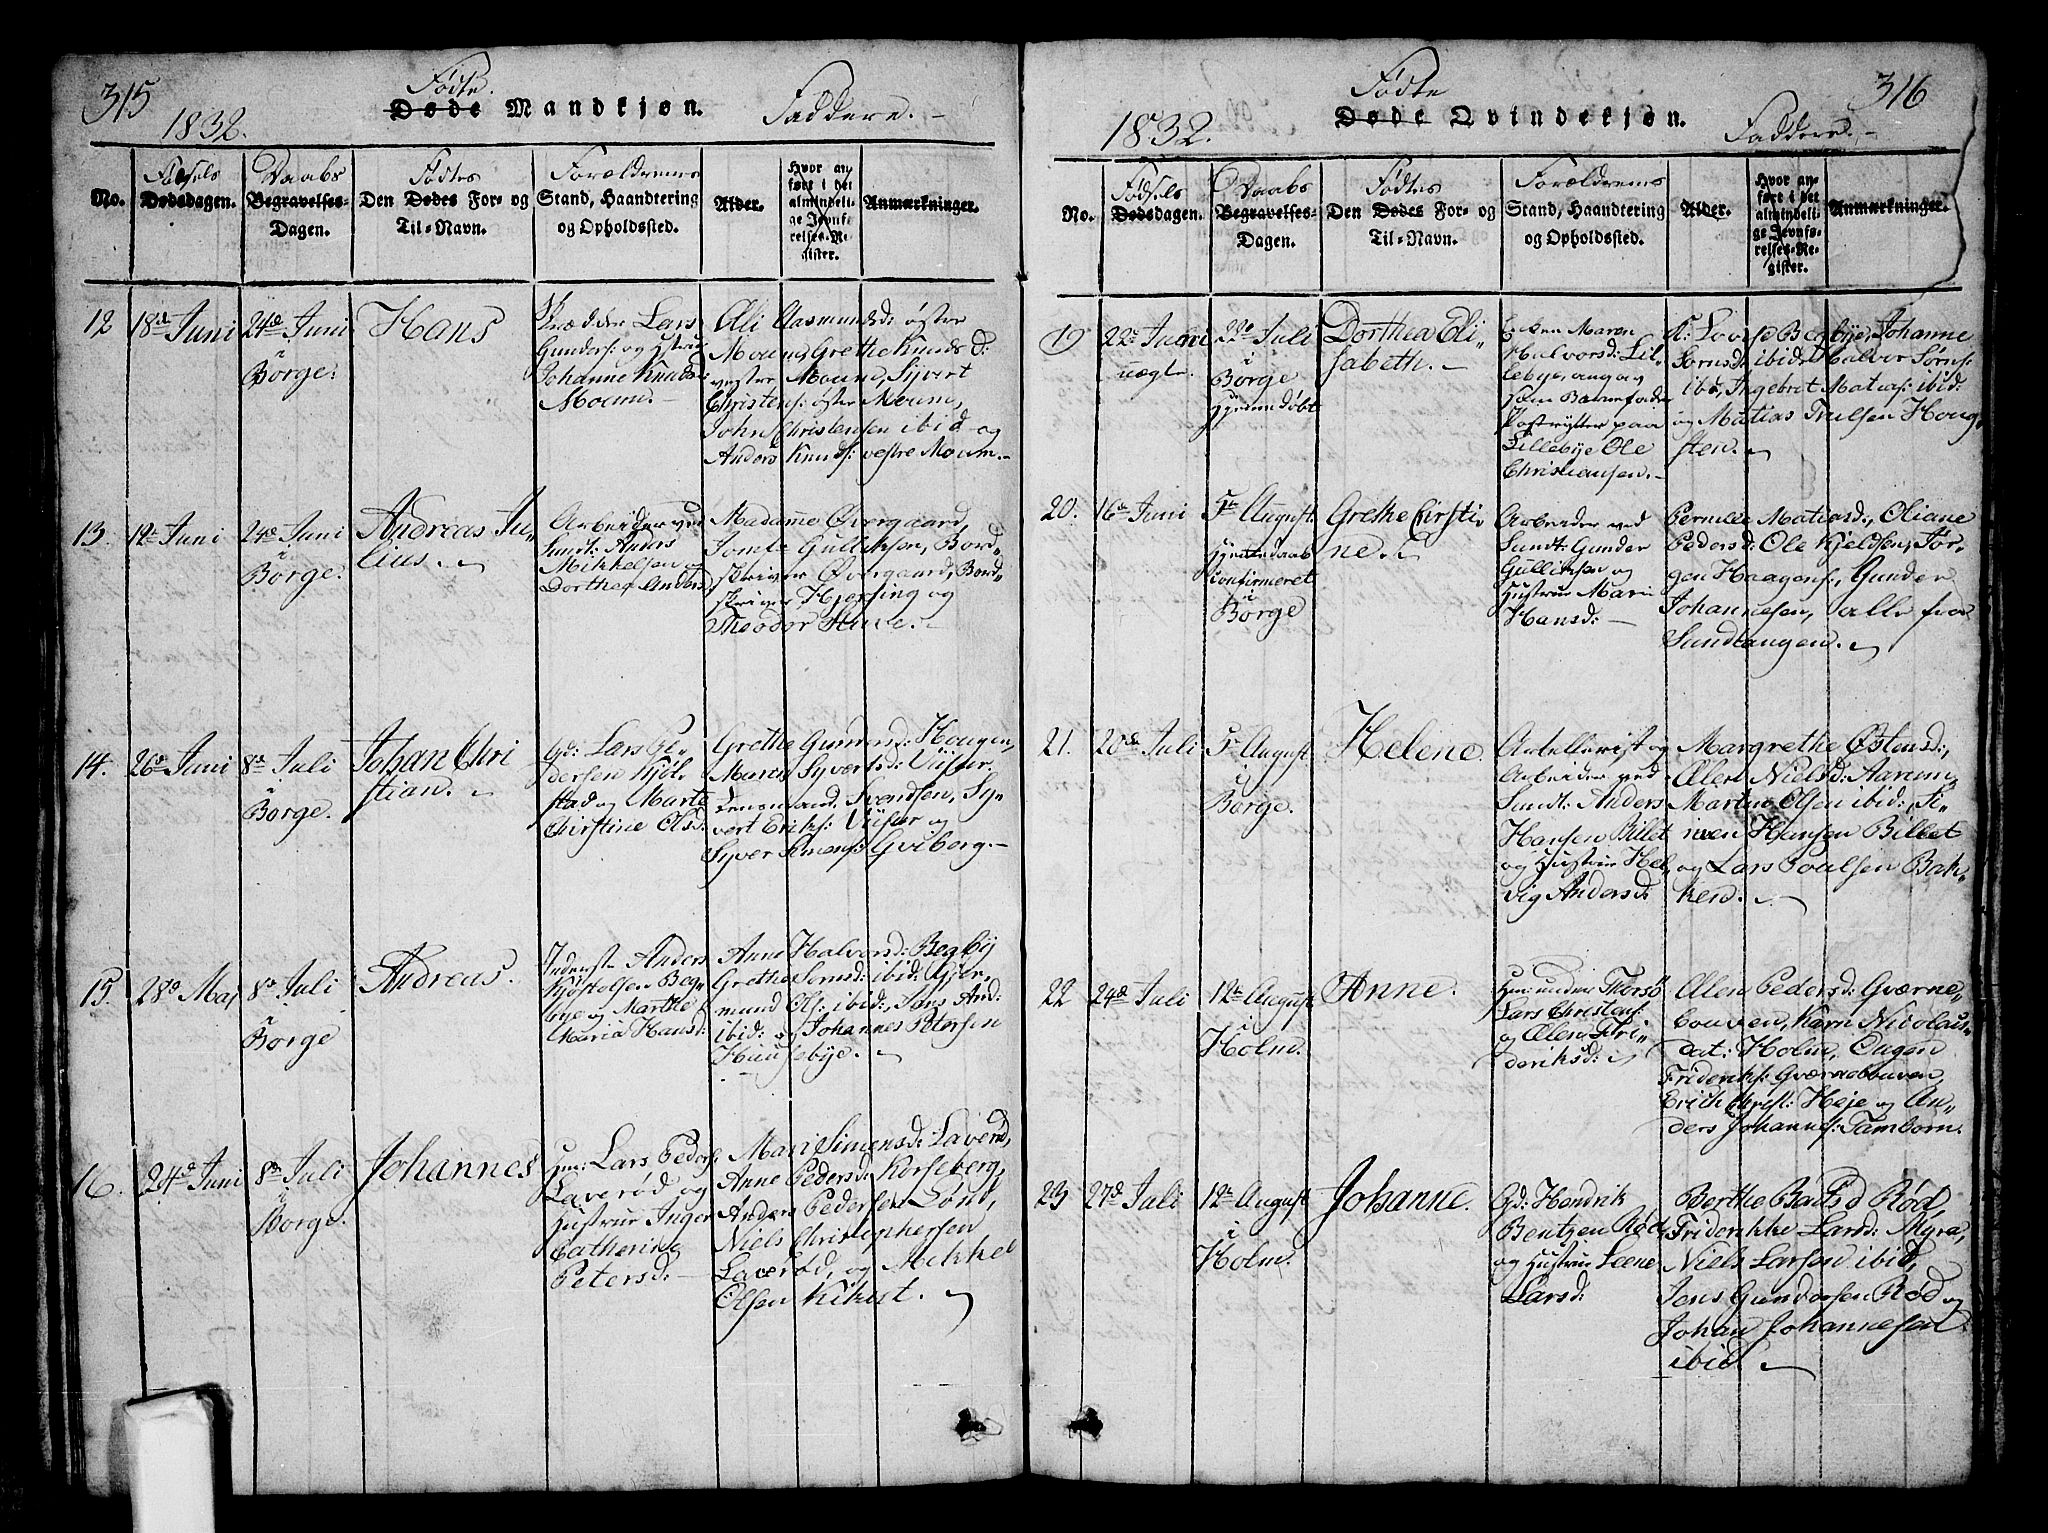 315
1832.
Fødte
Døde Mandkjøn.
Faddere.
No.
Fødsels
Dødsdagen.
Daabs
Begravelses-
Dagen.
Fødtes
Den Dødes For- og
Til-Navn.
Forældrenes
Stand, Haandtering
og Opholdssted.
Alder.
Hvor an-
ført i det
almindeli-
ge Jevnfø-
relses-Re-
gister.
Anmærkninger.
12
18d Juni
24d Juni
i
Borge.
Hans
Skrædder Lars
Gunders: og Hustru
Johanne Knuds:
Moum.
Oli Aasmundsd: østre
Moum, Grethe Knudsd:
vestre Moum, Syvert
Christens: østre Moum,
John Christensen ibid og
Anders Knuds: vestre Moum.
13.
12te Juni
24de Juni
i
Borge.
Andreas Ju-
lius.
Arbeider ved
Sundt: Anders
Mikkelsen og
Dorthea Anders
Madamme Øvergaard,
Jomfr Gulliksen, Bord-
skriver Øvergaard, Bord-
skriver Hjorsing og
Theodor
14.
26d Juni
8d Juli
i
Borge.
Johan Chri
stian.
Gd: Lars Pe-
dersen Kjøl-
stad og Marte
Chirstine Olsd:
Grethe Gunersd: Hougen,
Maren Syversd: Viister
Lensmand Svendsen, Sy-
vert Eriks: Viister og
Syver Simens: Gviberg.
15.
28d Maj
8d Juli
i
Borge
Andreas.
Inderst Anders
Kjøstolsen Beg-
bye og Marthe
Maria Hans:
Anne Halvorsd: Begby
Grethe Sørnsd: ibid: Gjer-
mund Ols: ibid:, Lars And:
ibid: og Johannes Petersen
Hunsebye.
16.
24d Juni
8d Juli
i
Borge.
Johannes
Hm: Lars Peders:
Laverød og
Hustrue Inger
Catherine
Petersd:
Mari Simensd: Laverød,
Anne Pedersd: Korseberg,
Anders Pedersen Lønd,
Niels Christophersen
Laverød, og Mekkel
Olsen Kikert.
316
1832.
Fødte
Døde Qvindekjøn.
Faddere.
No.
Fødsels
Dødsdagen.
Daabs
Begravelses-
Dagen.
Fødtes
Den Dødes For- og
Til-Navn.
Forældrenes
Stand, Haandtering
og Opholdssted.
Alder.
Hvor an-
ført i det
almindeli-
ge Jevnfø-
relses-Re-
gister.
Anmærkninger.
19
22d Juni
uægte.
22d Juli
i
Borge
hjemmedøbt
Dorthea Eli-
sabeth.
Enken Maren
Halvorsd: Lil-
lebye, angav
som Barnefader
Postrytter paa
Lillebye Ole
Christiansen.
A: Lovise Begbye, Johanne
Sørnsd: ibid: Halvor Sørns:
ibd, Ingebret Matias: ibid.
og Matias Trulsen Houg-
sten.
20.
16de Juni
5te August
Hjemmedaab
confirmeret
i
Borge
Grethe Cirsti-
ne.
Arbeider ved
Sundt: Gunder
Gulliksen og
Hustrue Mari
Hansd:
Pernille Matiasd:, Oliane
Pedersd: Ole Kjeldsen, Jør-
gen Haagens:, Gunder
Johannesen, alle fra
Sandtangen.
21.
20de Juli
5te August
i
Borge.
Helene.
Artellerist og
Arbeider ved
Sundt: Anders
Hansen Billet
og Hustrue Hel-
vig Andersd:
Margrethe Østensd:,
Ælen Nielsd: Aarum,
Martin Olsen ibid: I-
wen Hansen Billet
og Lars Poulsen Bak-
ken.
22
24de Juli
12te August
i
Holm.
Anne.
Hm: under Thorsø
Lars Christens:
og Ælen Fri-
deriksd:
Ælen Pedersd: Gværne-
bouven, Karn Nicolais-
dat: Holm, Ougen
Friderichs: Gværnebbuven
Erich Christ: Heje og An-
ders Johanns: Tamborn.
23
27d Juli
12te August
i
Holm.
Johanne.
Gd: Hendrik
Bentzen Rød
og Hustrue Leene
Larsd:
Berthe Rød,
Friderikke Larsd: Myra,
Niels Larsen ibid,
Jens Gundersen Rød og
Johan Johannesen
ibid.